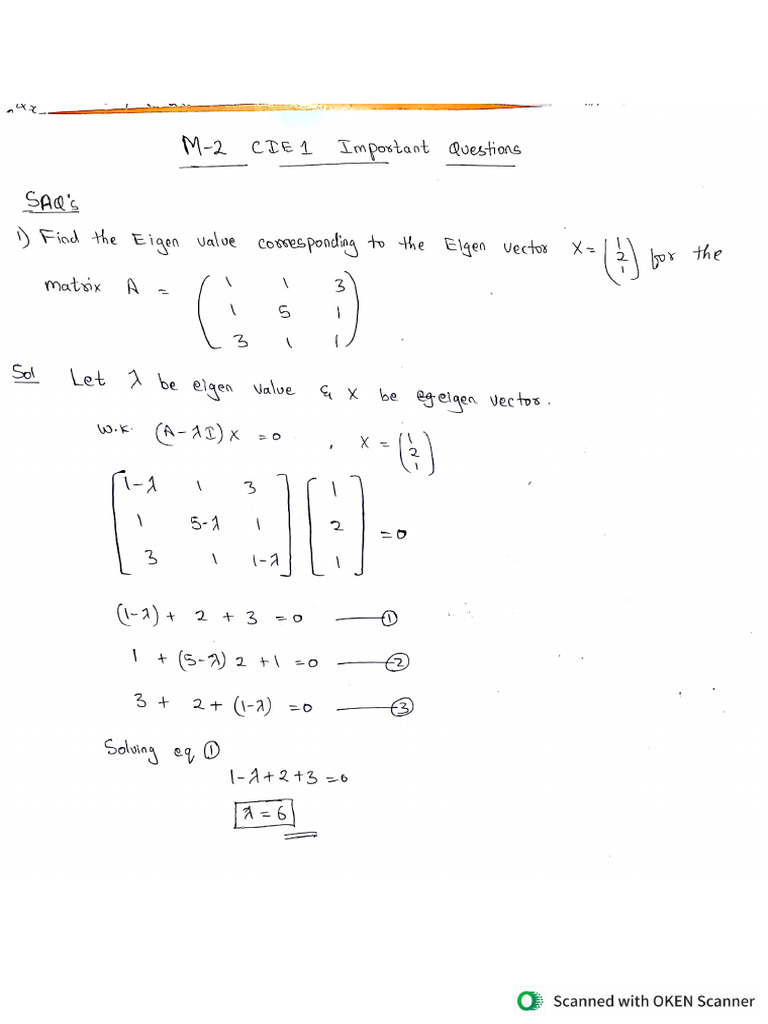 M-2 CIE1 Important Questions
SAQ's
1) Find the Eigen value corresponding to the EIgen vector X = (1 2 1) for the
matrix A = (1 1 3
1 5 1
3 1 1)
Sol Let λ be eigen value & X be eg eigen vector.
W.K. (A-λI)X = 0 , X = (1 2 1)
[1-λ 1 3] [1]
[1 5-λ 1] [2] = 0
[3 1 1-λ] [1]
(1-λ) + 2 + 3 = 0 —— ①
1 + (5-λ) 2 + 1 = 0 —— ②
3 + 2 + (1-λ) = 0 —— ③
Solving eq ①
1-λ+2+3 = 0
λ = 6
Scanned with OKEN Scanner